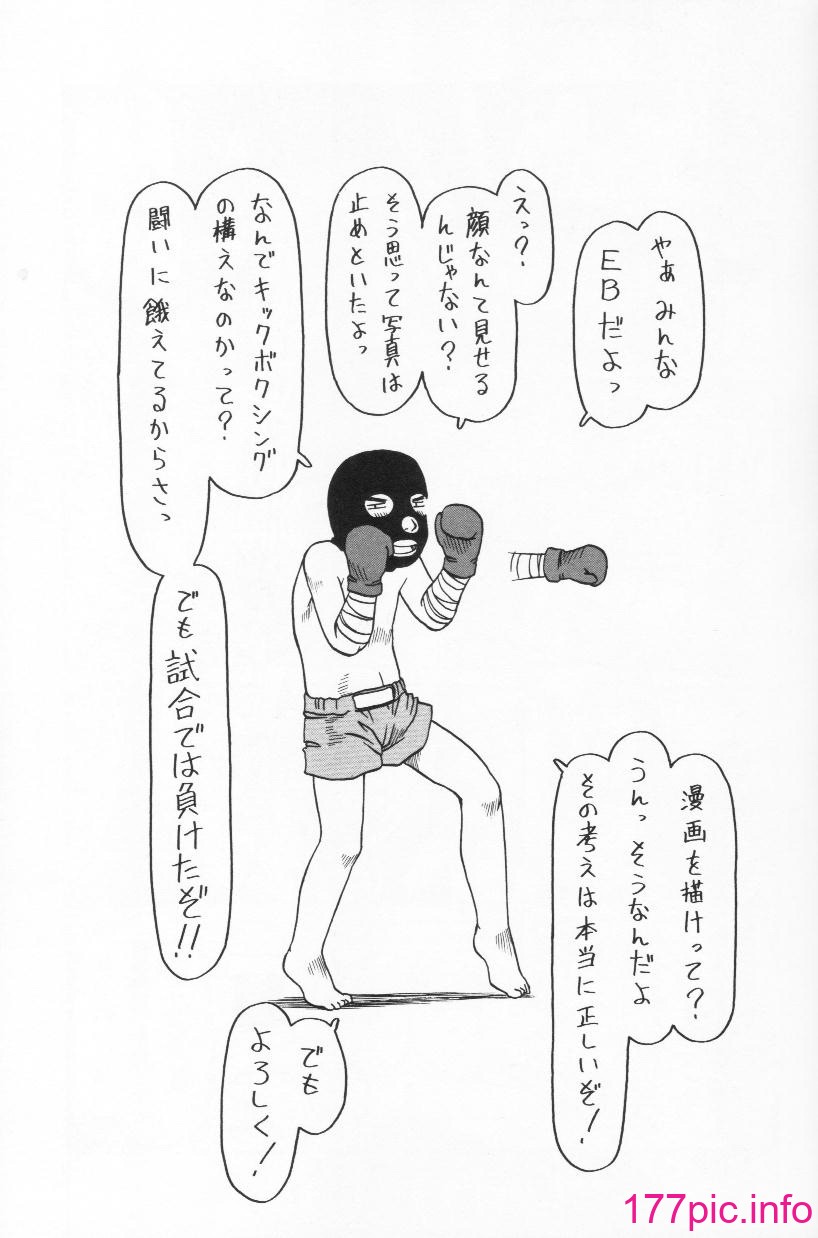 やぁ みんな
EBだよっ
えっ?
顔なんて見せる
んじゃない?
そう思って写真は
止めといたよっ
なんでキックボクシング
の構えなのかって?
闘いに餓えてるからさっ
でも試合では負けたぞ!!
漫画を描けって?
うんっ そうなんだよ
その考えは本当に正しいぞ!
でも
よろしく!
177pic.info